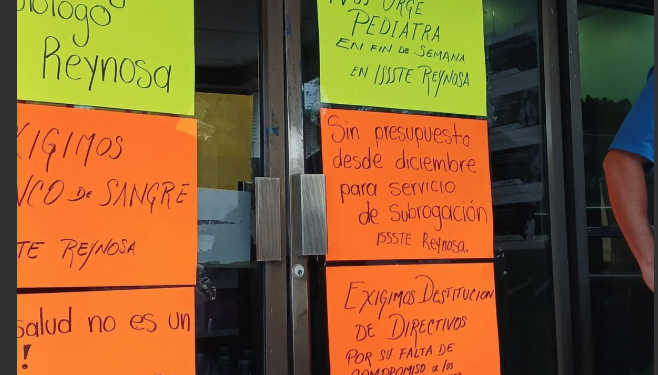 Reynosa
EXIGIMOS
BANCO DE SANGRE
ISSSTE REYNOSA
salud no es un
!
NOS URGE
PEDIATRA
EN FIN DE SEMANA
EN ISSSTE REYNOSA
Sin presupuesto
desde diciembre
para servicio
de subrogación
ISSSTE Reynosa.
EXIGIMOS DESTITUCION
DE DIRECTIVOS
POR SU FALTA DE
COMPROMISO a los